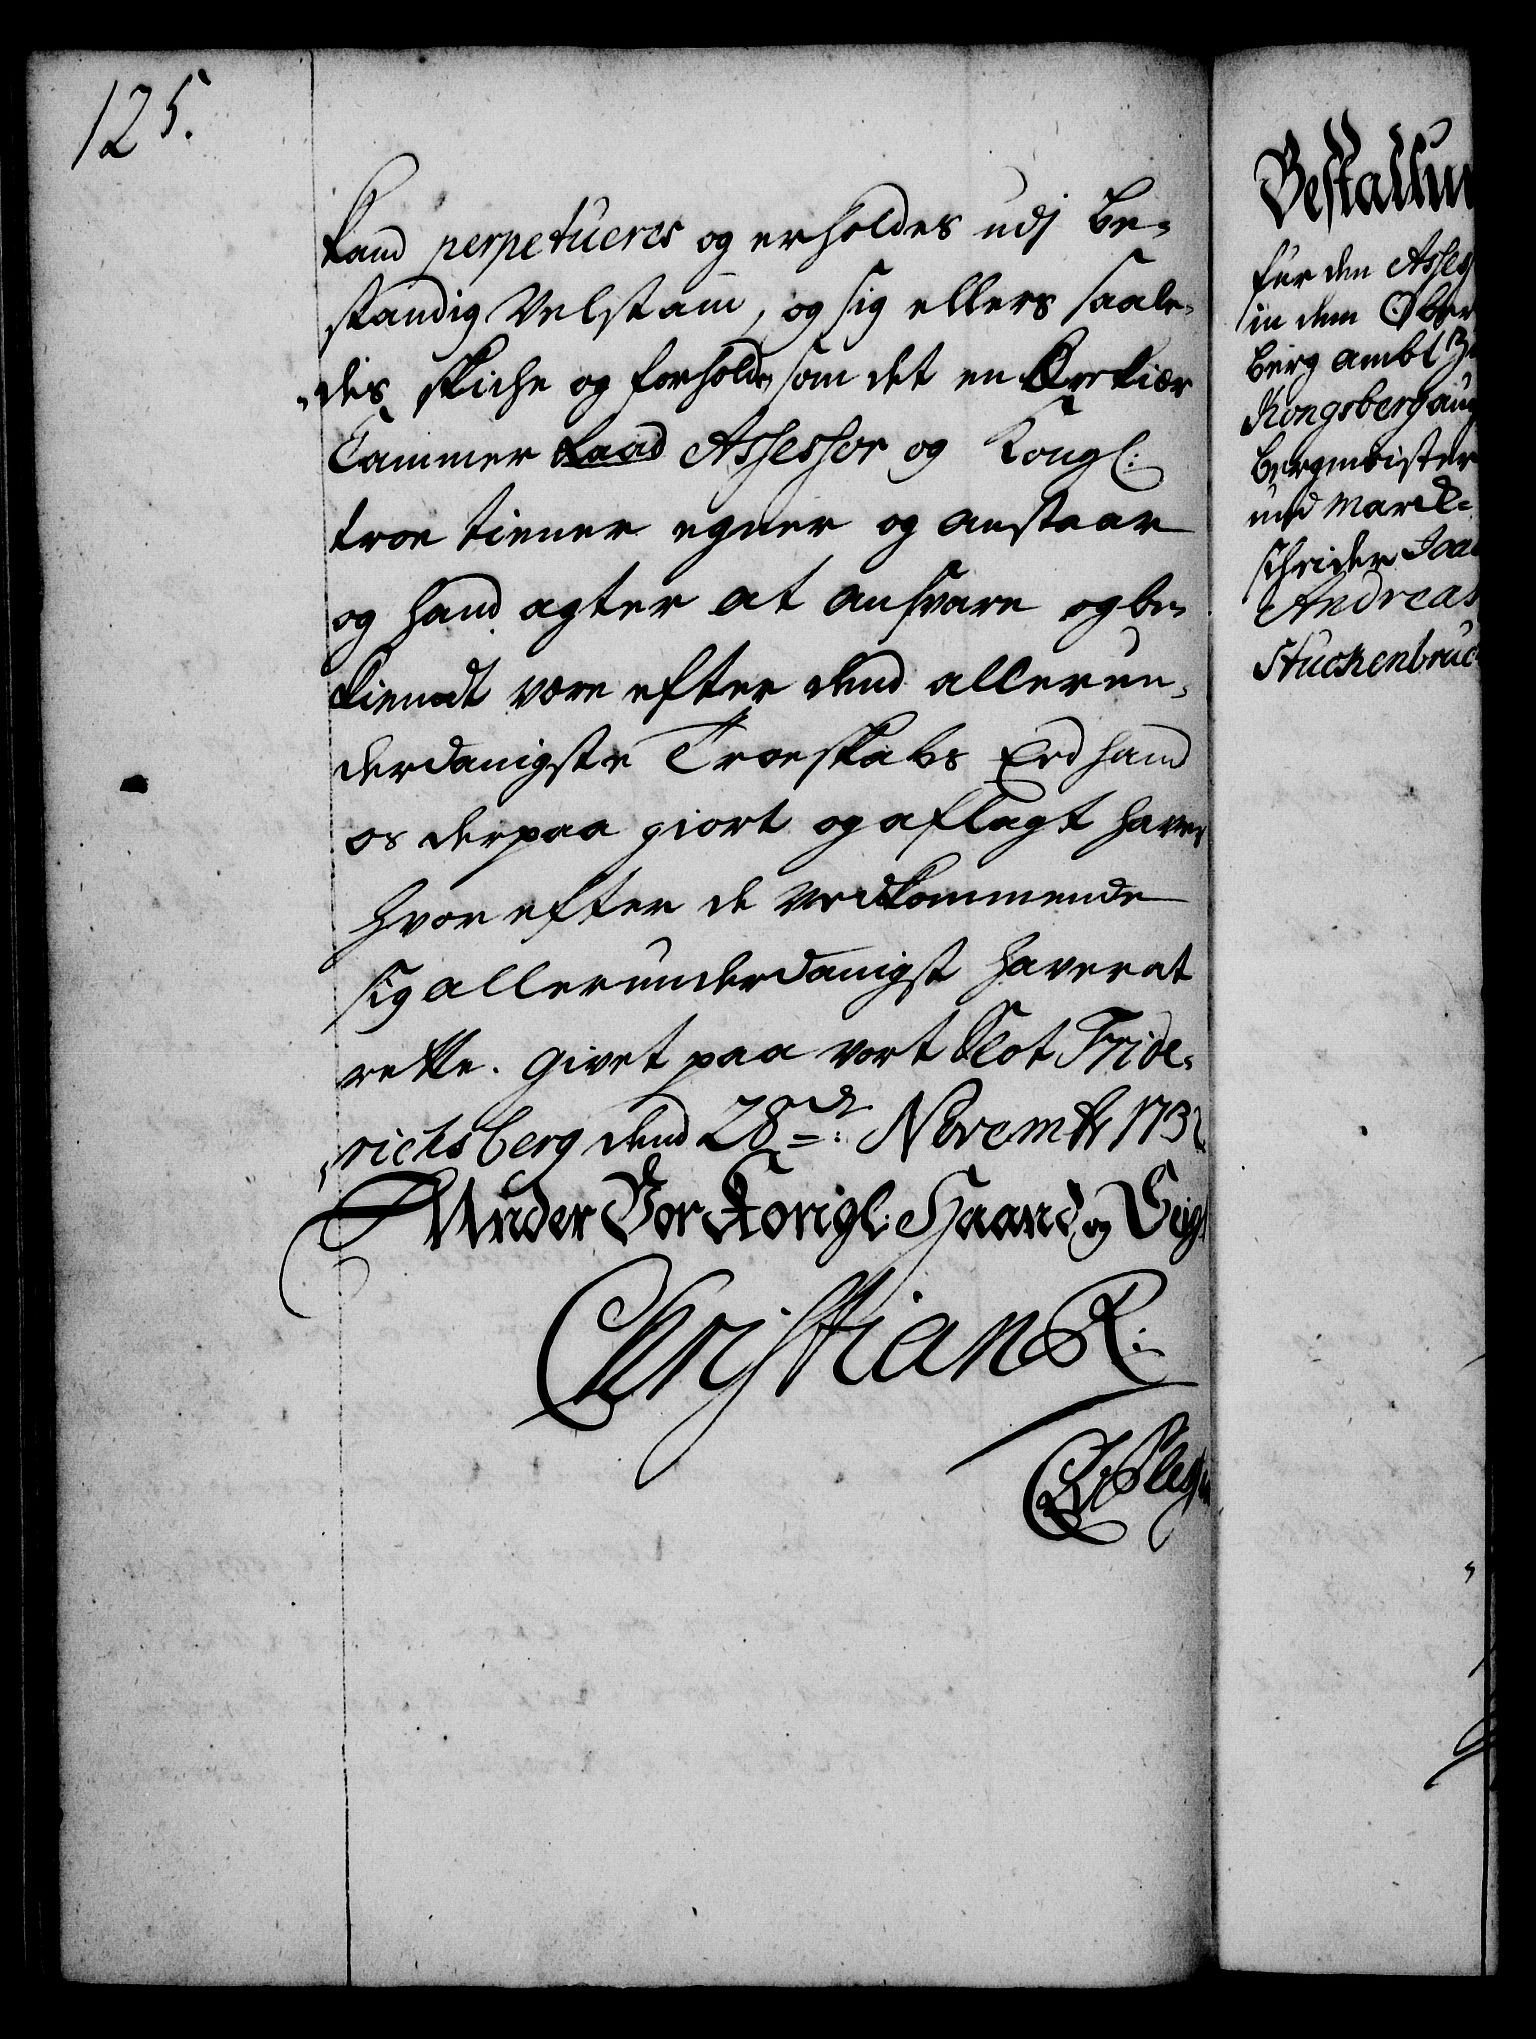 125.
kand perpetueres og erholdes udj be-
standig Velstand, og sig ellers saale-
des skiche og forholde, som det en Ærekiær
Cammer Raad Assessor og Kongl:
troe tiener egner og anstaar
og hand agter at ansvare og be-
kiendt være efter dend allerun-
derdanigste Troeskabs Eed hand
os derpaa giort og aflagt haver
hvorefter de Vedkommende
sig allerunderdanigst haver at
rette. Givet paa vort Slot Fride-
richsberg dend 28de: Novembr 173
Under Vor Kongl: Haand og
Christian R:
Bestallun
für den Assess
in dem Ober
berg ambt Zu
Kongsberg auch
Bergmeister
und Marck-
schrider Joac
Andreas
Stuckenbruc